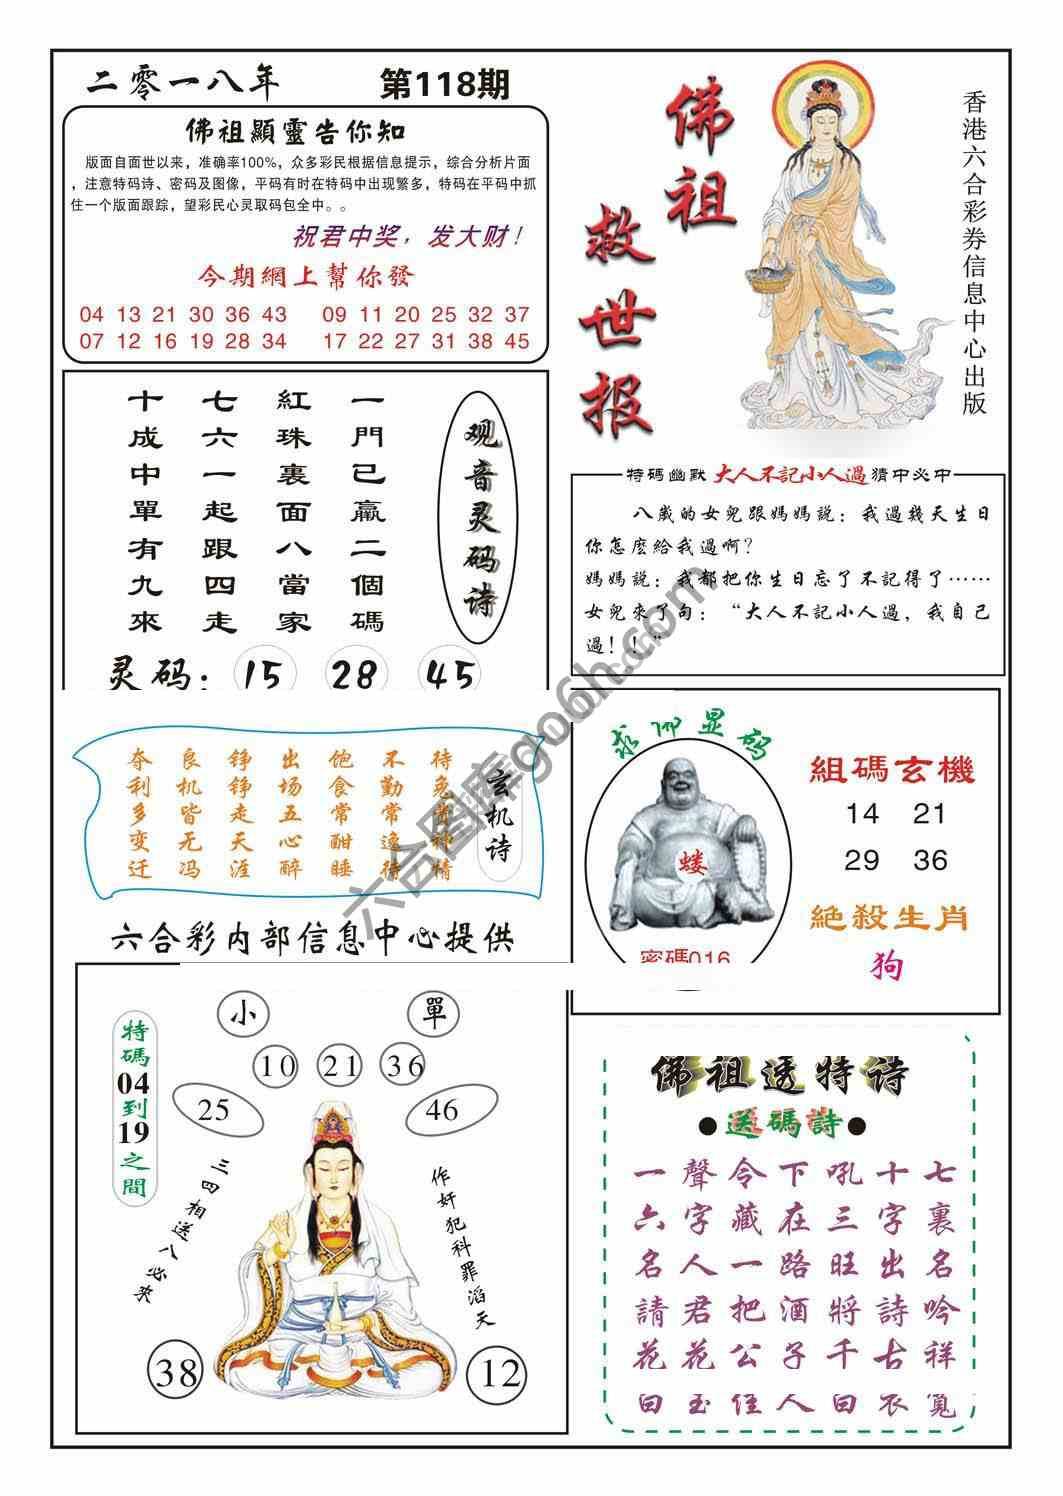 二零一八年
第118期
佛祖顯靈告你知
版面自面世以来，准确率100%，众多彩民根据信息提示，综合分析片面
，注意特码诗、密码及图像，平码有时在特码中出现繁多，特码在平码中抓
住一个版面跟踪，望彩民心灵取码包全中。。
祝君中奖，发大财！
今期網上幫你發
04 13 21 30 36 43 09 11 20 25 32 37
07 12 16 19 28 34 17 22 27 31 38 45
佛祖救世报
香港六合彩券信息中心出版
观音灵码诗
一門已贏二個碼
紅珠裏面八當家
七六一起跟四走
十成中單有九來
灵码：15 28 45
特码幽默 大人不記小人過 猜中必中
八歲的女兒跟媽媽說：我過幾天生日
你怎麽給我過啊？
媽媽說：我都把你生日忘了不記得了……
女兒來了句：“大人不記小人過，我自己
過！！”
玄机诗
待兔费神精
不勤常逸待
饱食常酣睡
出场五心醉
铮铮走天涯
良机皆无冯
夺利多变迁
六合彩内部信息中心提供
求佛显码
蝼
密碼016
組碼玄機
14 21
29 36
絕殺生肖
狗
特碼04到19之間
小
單
10 21 36
25
46
三四相送八必來
作奸犯科罪滔天
38
12
佛祖透特诗
●送碼詩●
一聲令下吼十七
六字藏在三字裏
名人一路旺出名
請君把酒將詩吟
花花公子千古祥
六合图库go6h.com